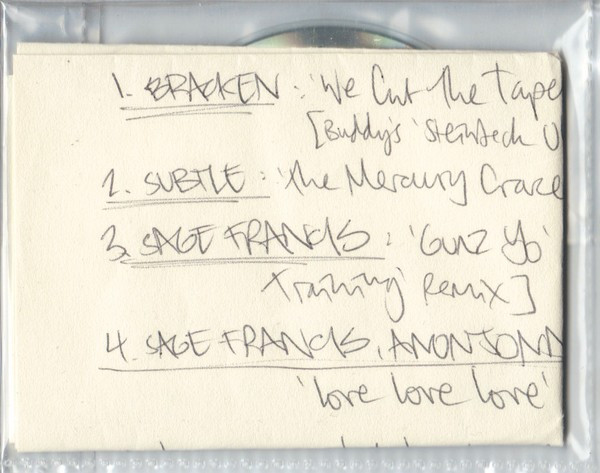 1. BRACKEN : 'We Cut The Tape
[Buddy's
2. SUBTLE : 'The Mercury Craze
3. SAGE FRANCIS : 'Gunz Yo'
Training' Remix]
4. SAGE FRANCIS, ANONJON
'love love love'